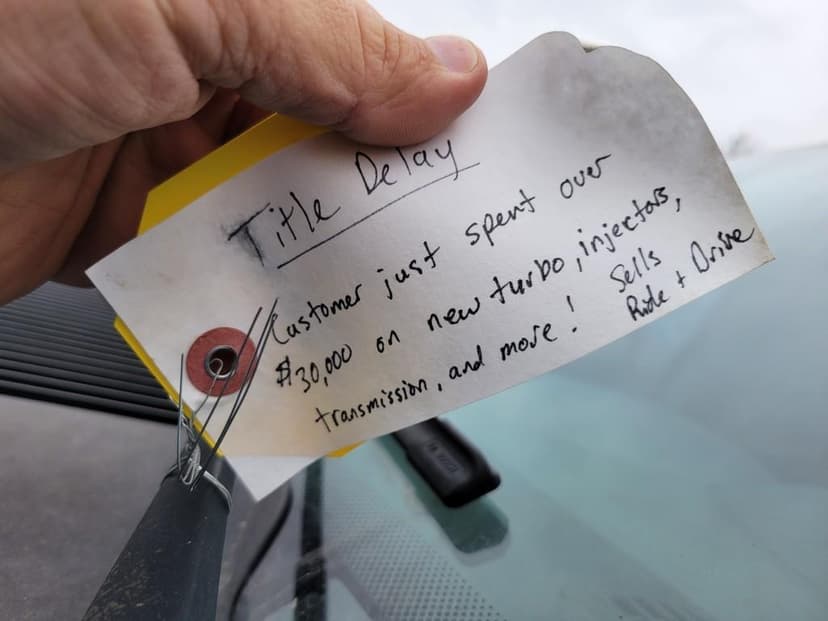 Title Delay
Customer just spent over
$30,000 on new turbo, injectors,
transmission, and more! Sells
Ride + Drive